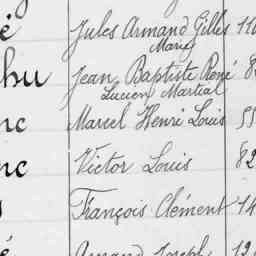 é Jules Armand Gilles 110
Marie
hu Jean Baptiste René 8
Lucien Martial
nc Marcel Henri Louis 55
nc Victor Louis 82
François Clément 14
é Armand Joseph 12